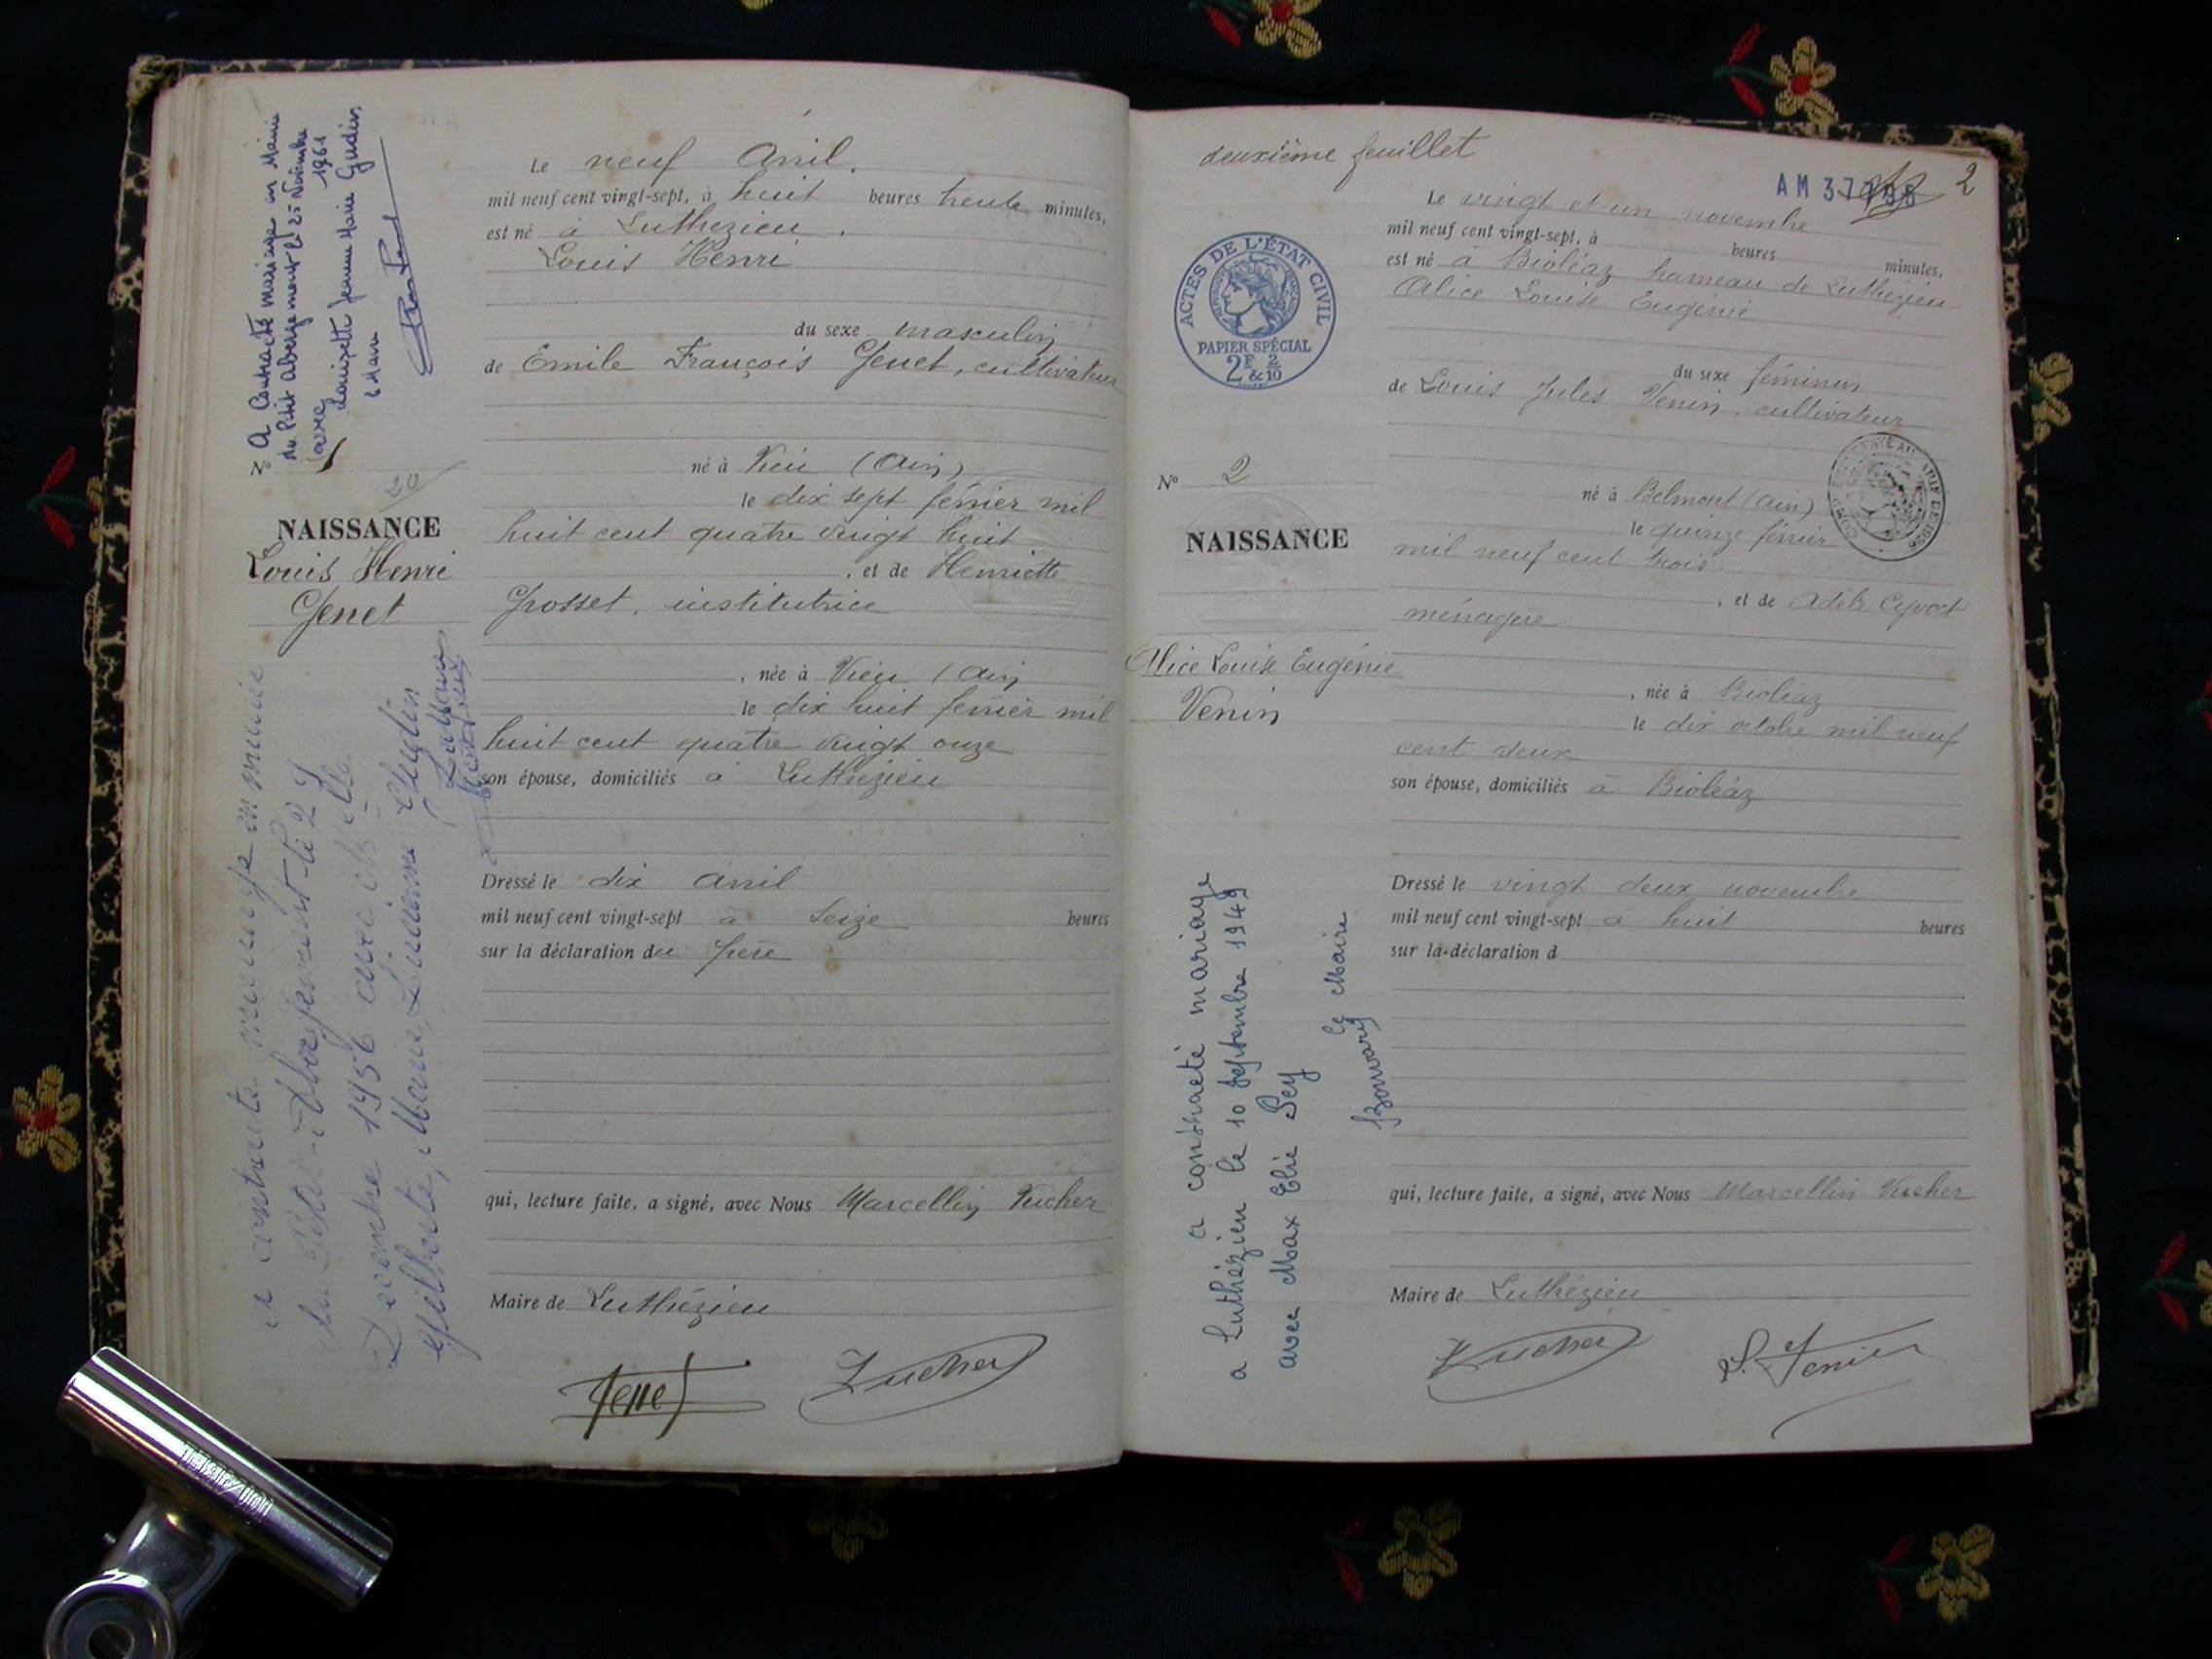 A Contracté mariage en Mairie
du Petit Abergement le 25 Novembre
1961
avec
Louisette Jeanne Marie Gudin
le Maire
N°
20
NAISSANCE
Louis Henri
Genet
a contracté mariage en mairie
du Petit-Abergement le 29
Décembre 1956 avec
Gilberte, Marie, Simone
Le neuf Avril.
mil neuf cent vingt-sept, à huit heures trente minutes,
est né à Luthezieu.
Louis Henri
du sexe masculin
de Emile François Genet, cultivateur
né à Vieu (Ain)
le dix sept février mil
huit cent quatre vingt huit
, et de Henriette
Grosset, institutrice
, née à Vieu (Ain)
le dix huit février mil
huit cent quatre vingt onze
son épouse, domiciliés à Luthézieu
Dressé le dix Avril
mil neuf cent vingt-sept à seize heures
sur la déclaration du père
qui, lecture faite, a signé, avec Nous Marcellin Vucher
Maire de Luthézieu
Genet Vucher
deuxième feuillet
2
AM 37
ACTES DE L'ÉTAT CIVIL
PAPIER SPÉCIAL
2F & 2/10
N° 2
NAISSANCE
Alice Louise Eugénie
Venin
a contracté mariage
a Luthézieu le 10 Septembre 1949
avec Max Elie Sey
le Maire
Bonvard
Le vingt et un novembre
mil neuf cent vingt-sept, à heures minutes,
est né à Bioléaz hameau de Luthézieu
Alice Louise Eugénie
du sexe féminin
de Louis Jules Venin, cultivateur
né à Belmont (Ain)
le quinze février
mil neuf cent trois
, et de Adèle
ménagère
, née à Bioléaz
le dix octobre mil neuf
cent deux
son épouse, domiciliés à Bioléaz
Dressé le vingt deux novembre
mil neuf cent vingt-sept à huit heures
sur la déclaration d
qui, lecture faite, a signé, avec Nous Marcellin Vucher
Maire de Luthézieu
Vucher Venin